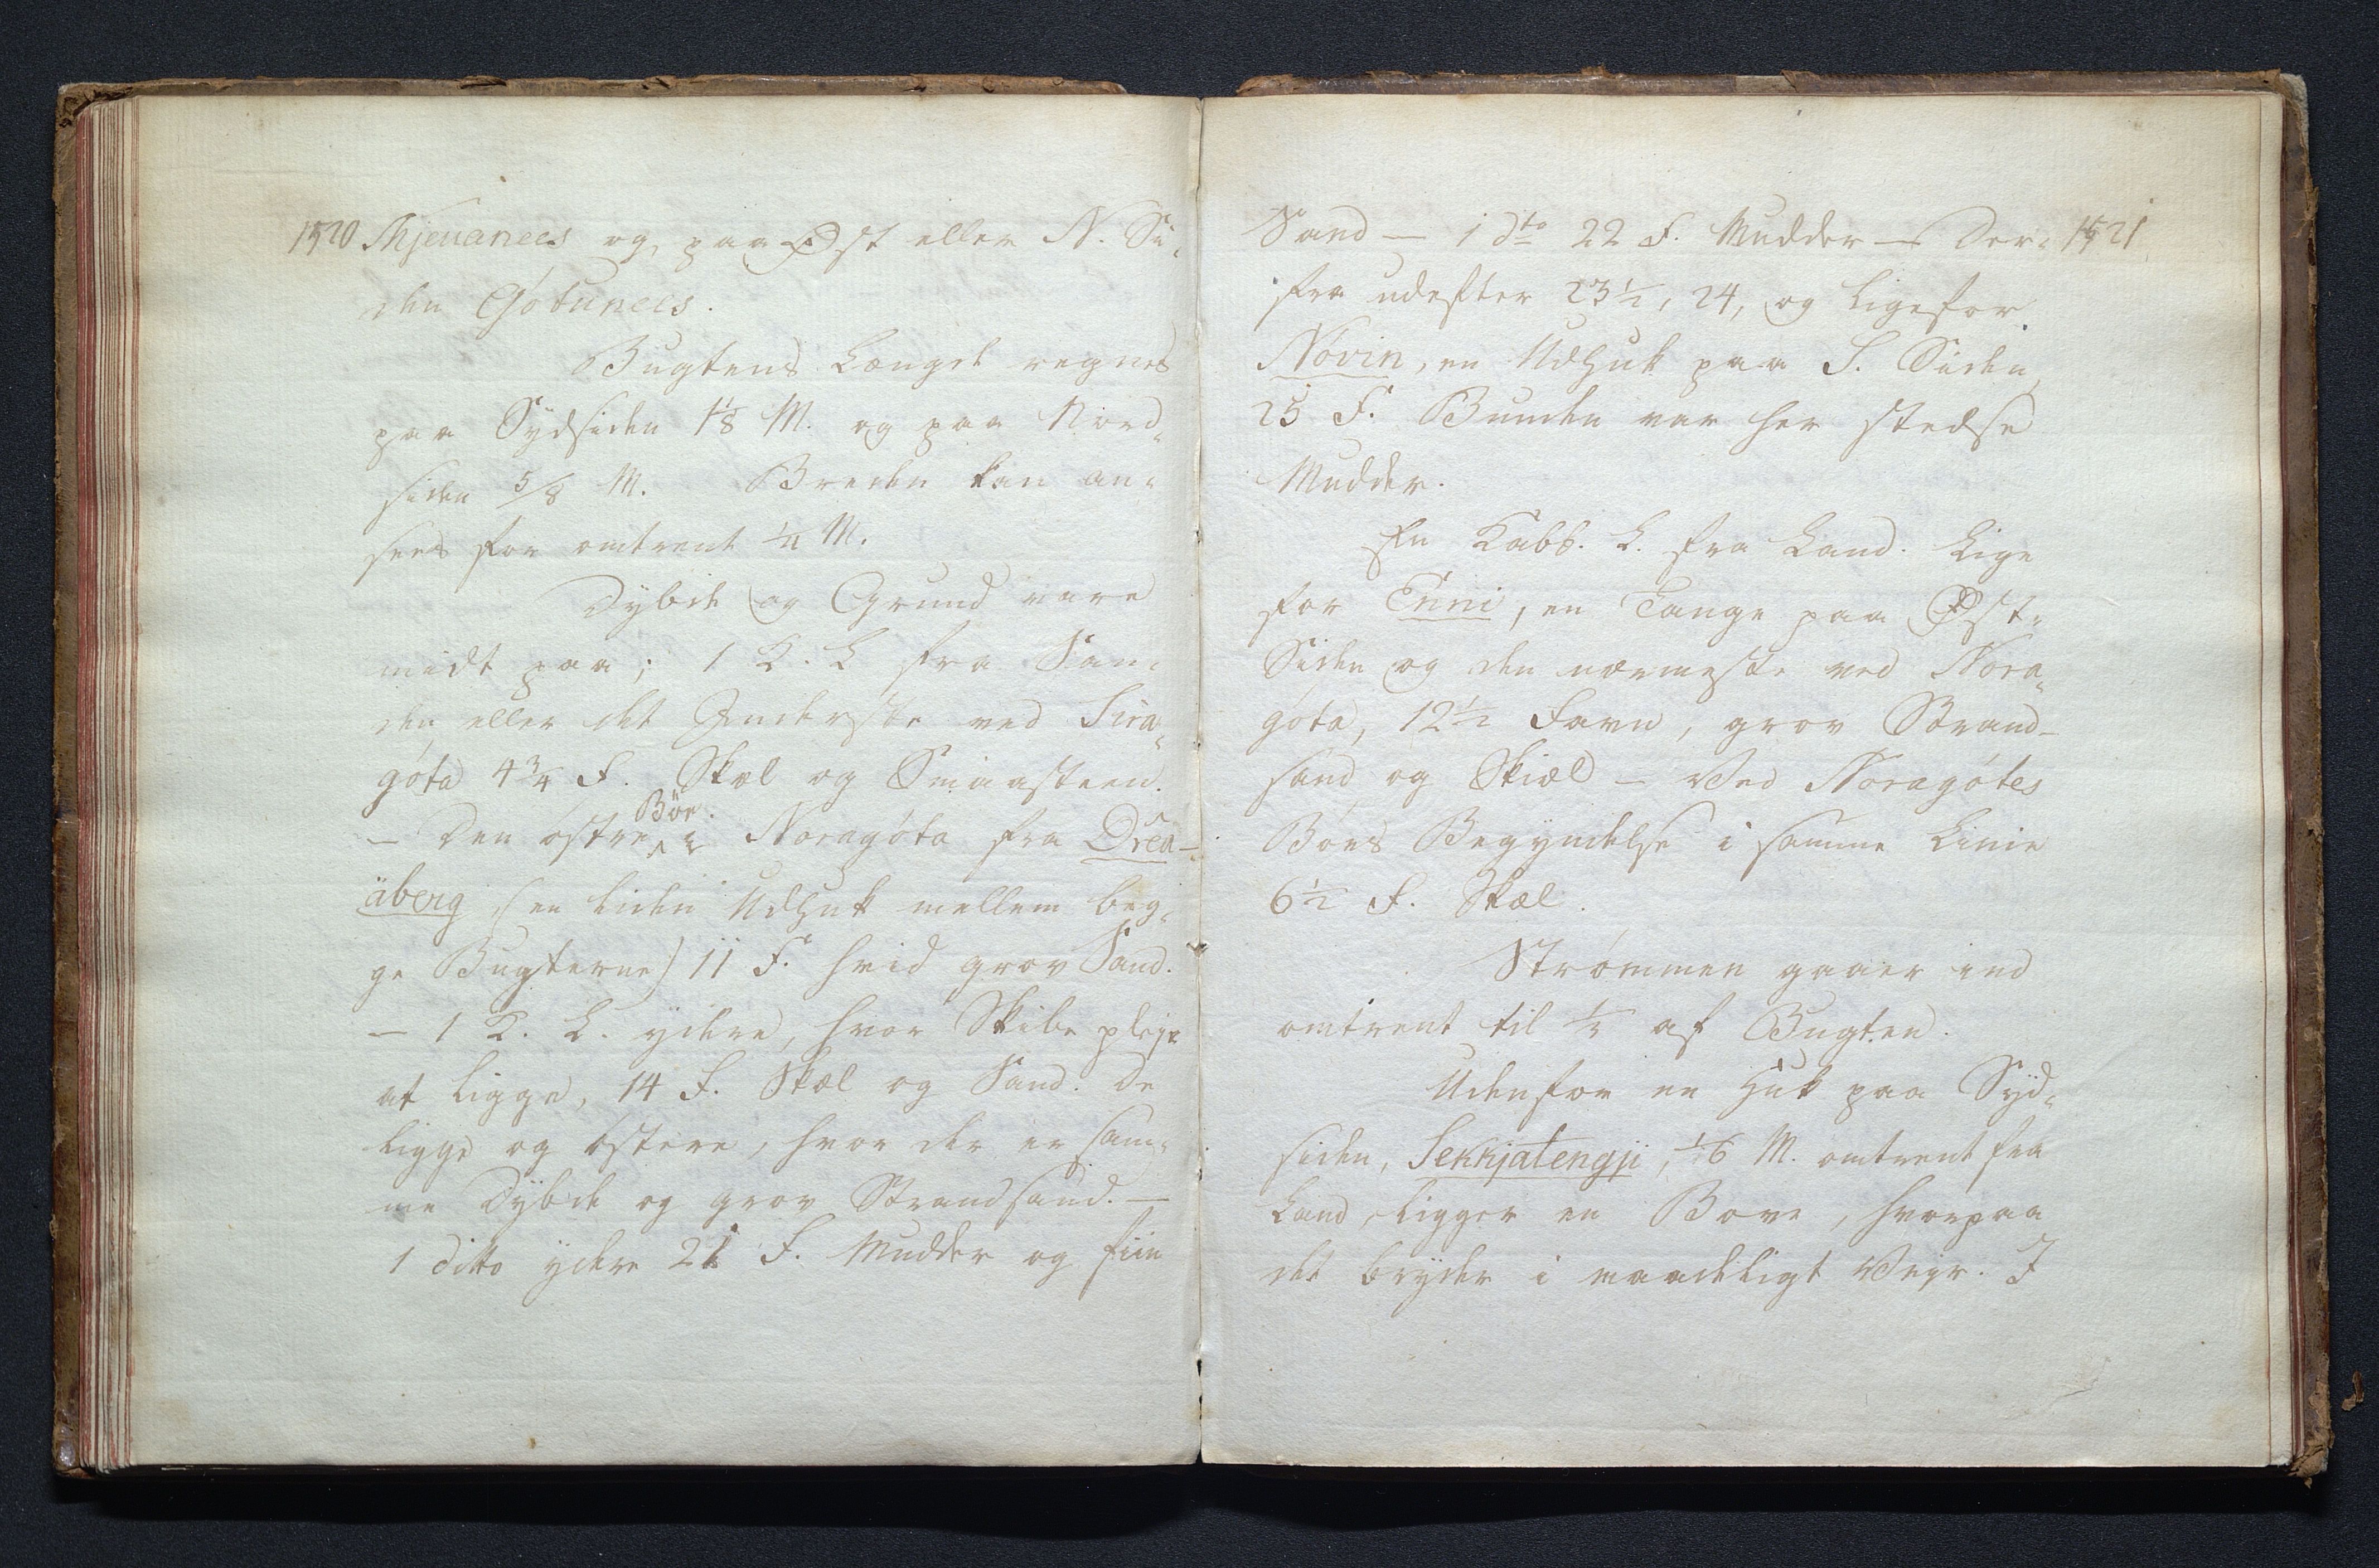 1520 Mjeuanees og, paa Øst eller N. Si-
den Gøtunees.
Bugtens Længde regnes
paa Sydsiden 1⅛ M. og paa Nord-
siden 5/8 M. Breden kan an-
sees for omtrent ¼ M.
Dybde og Grund vare
midt paa; 1 K. L fra San-
den eller det Inderste ved Sira-
gøta 4¾ F. Skæl og Smaasteen.
Böe.
— Den østre i Noragøta fra Drea-
äberg (en liden Udhuk mellem beg-
ge Bugterne) 11 F. hvid grov Sand.
— 1 K. L. ydere, hvor Skibe pleje
at ligge, 14 F. Skæl og Sand. De
ligge og østere, hvor der er sam-
me Dybde og grov Strandsand. —
1 ditto ydere 21 F. Mudder og fiin
Sand — 1 dto 22 F. Mudder — Der- 1521
fra udefter 23½, 24, og ligefor
Nóvin, en Udhuk paa S. Siden,
25 F. Bunden var her stedse
Mudder.
En Kabb. L. fra Land. Lige
for Enni, en Tange paa Øst-
Siden og den nærmeste ved Nora-
gøta, 12½ Favn, grov Strand-
sand og Skiæl — Ved Noragøtes
Bøes Begyndelse i samme Linie
6½ F. Skæl.
Strømmen gaaer ind
omtrent til ½ af Bugten.
Udenfor en Huk paa Syd-
siden, Sekkjatengji, 1/6 M. omtrent fra
Land, ligger en Bove, hvorpaa
det bryder i maadeligt Vejr. I